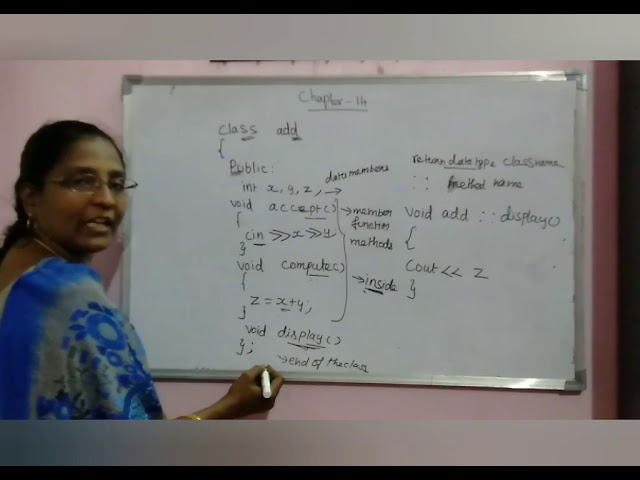 Chapter-14
class add
{
Public:
int x, y, z, → data members
void accept()
{
cin >> x >> y
}
void compute()
{
z = x+y;
}
void display()
};
→ end of the class
→ member
function
methods
→ inside
return datatype classname
:: method name
void add :: display()
{
Cout << z
}